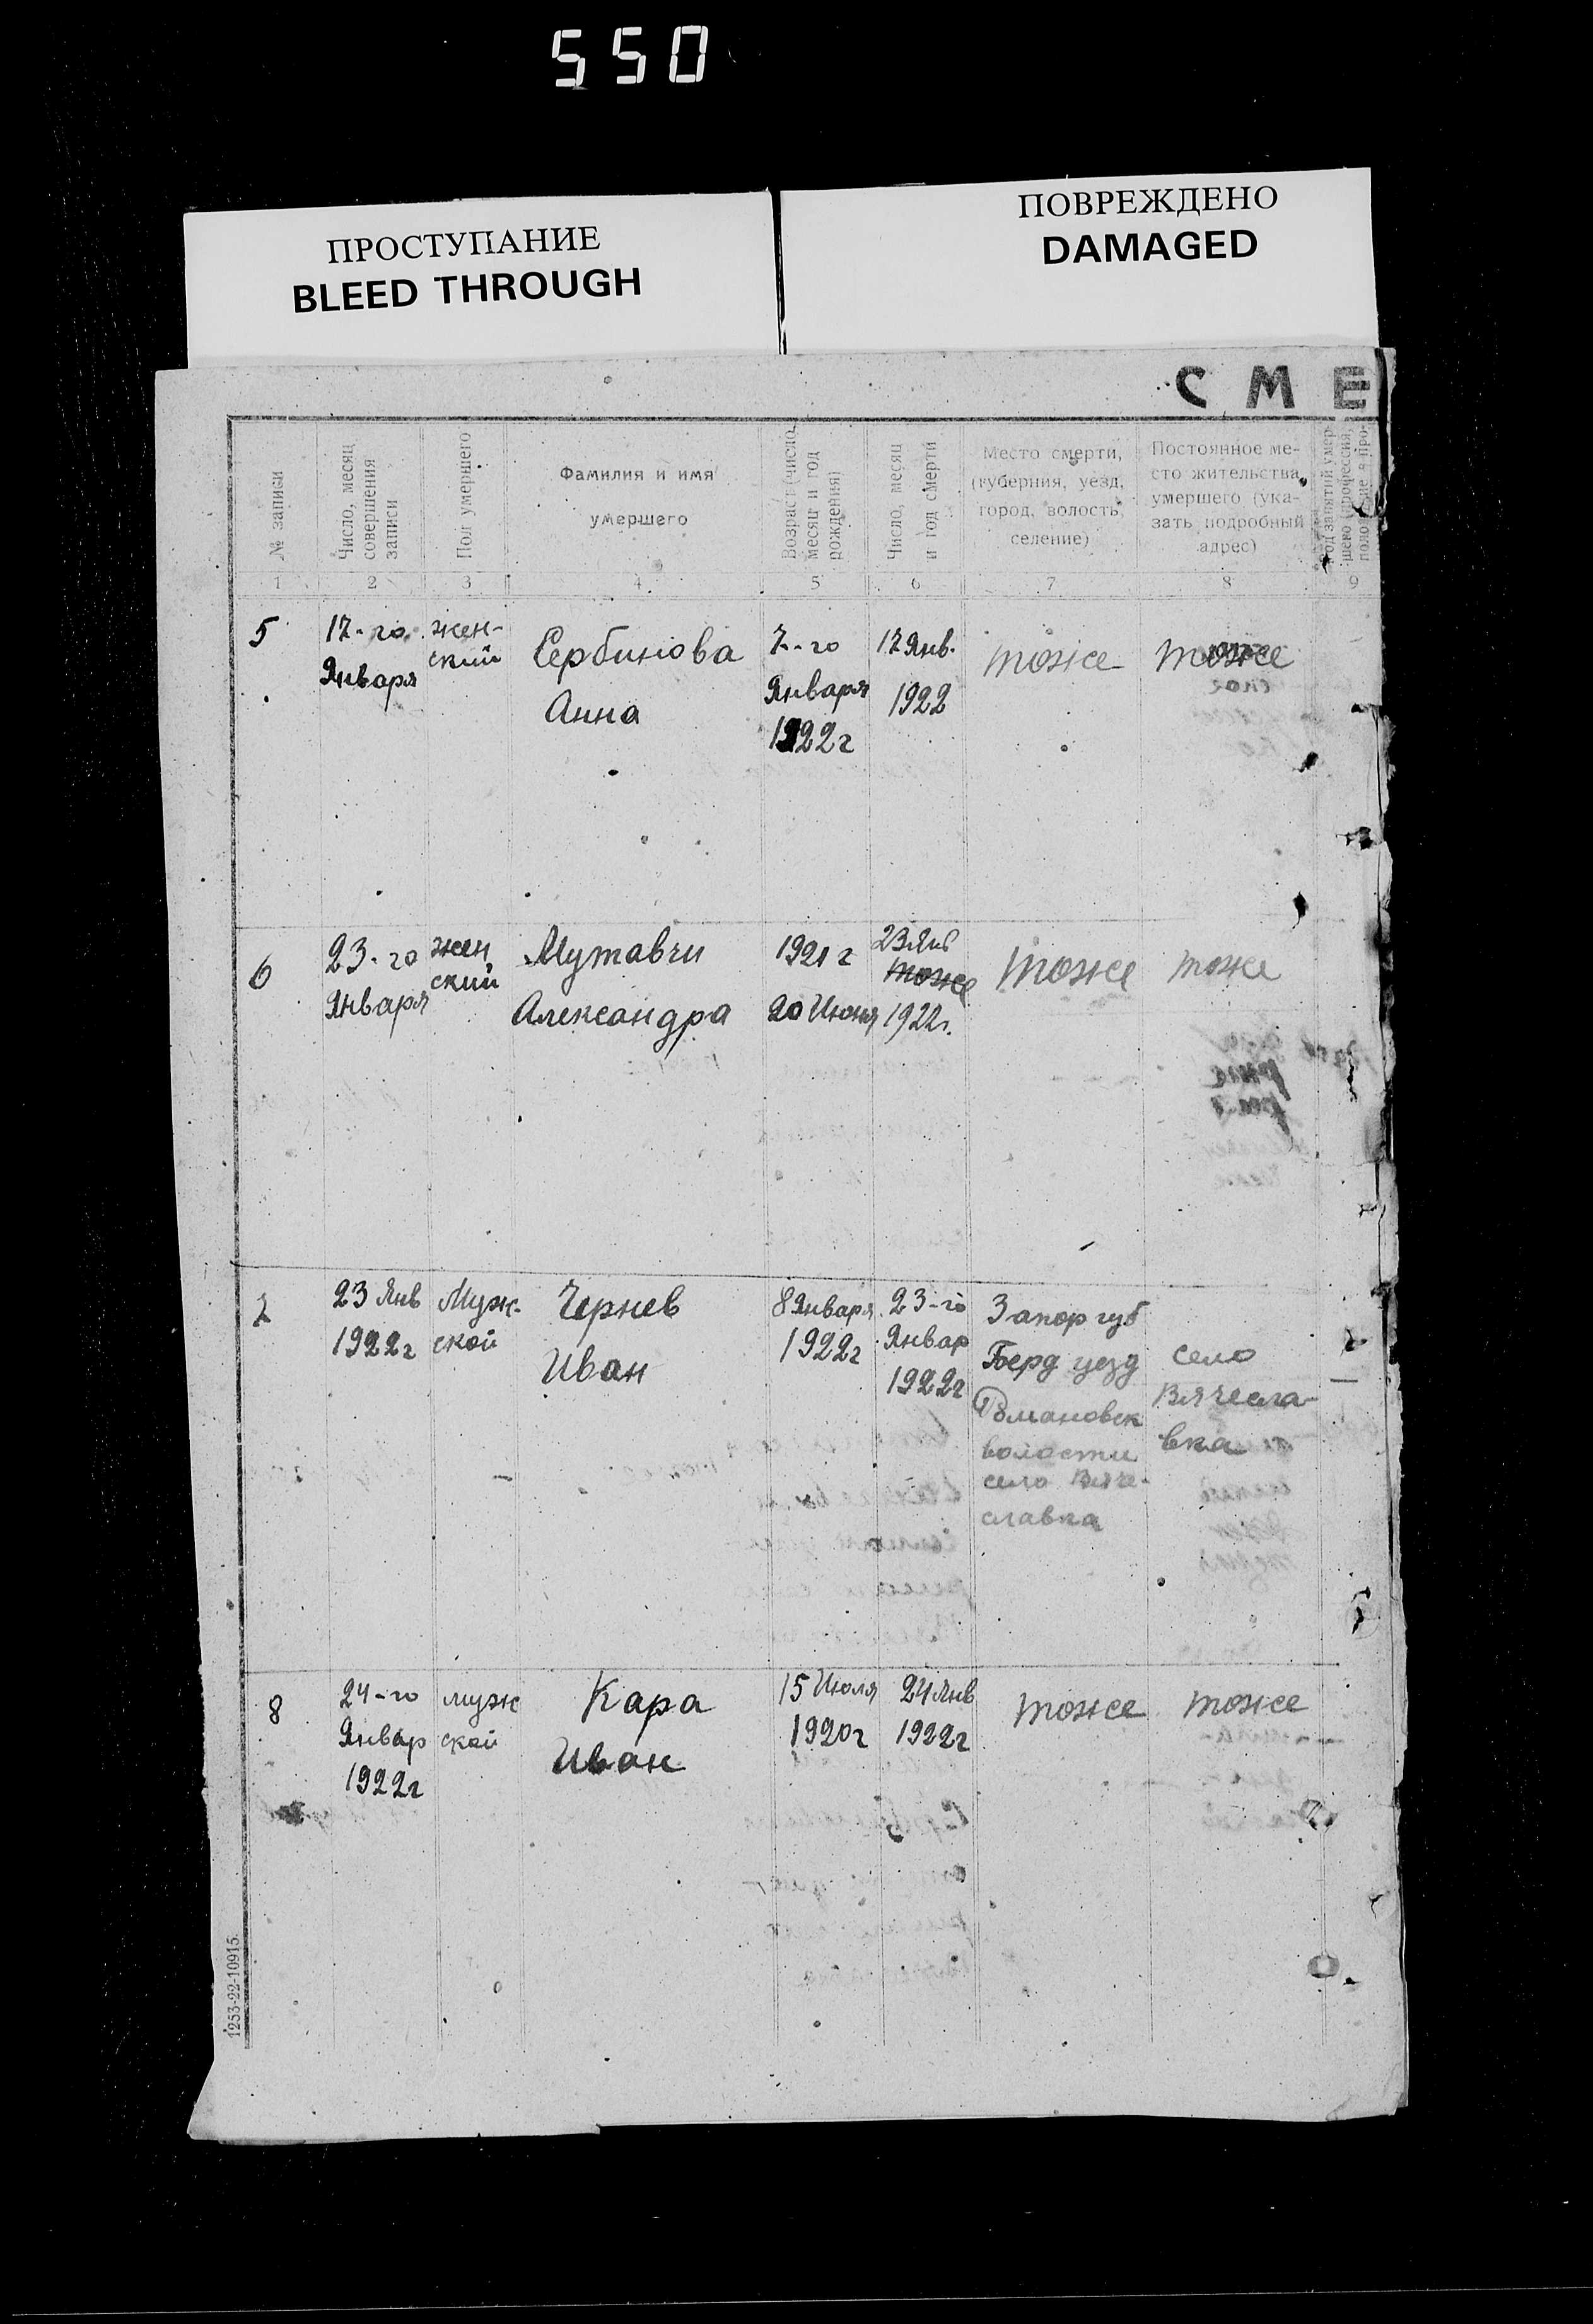 550
ПРОСТУПАНИЕ
BLEED THROUGH
ПОВРЕЖДЕНО
DAMAGED
СМЕ
№ записи
Число, месяц
совершения
записи
Пол умершего
Фамилия и имя
умершего
Возраст (число,
месяц и год
рождения)
Число, месяц
и год смерти
Место смерти,
(губерния, уезд,
город, волость,
селение)
Постоянное ме-
сто жительства
умершего (ука-
зать подробный
адрес)
Род занятий умер-
1 2 3 4 5 6 7 8 9
5
17-го
Января
жен-
ский
Сербинова
Анна
7-го
Января
1922г
17 Янв.
1922
тоже
тоже
6
23-го
Января
жен
ский
Мутавчи
Александра
1921 г
20 Июня
23 Янв
тоже
1922г.
тоже
тоже
7
23 Янв
1922г
Муж-
ской
Чернев
Иван
8 Января
1922г
23-го
Январ
1922г
Запор губ
Берд уезд
Романовск
волости
село Вяче-
славка
село
Вячесла-
вка
8
24-го
Январ
1922г
муж
ской
Кара
Иван
15 Июля
1920г
24 Янв
1922г
тоже
тоже
1253-22-10915.